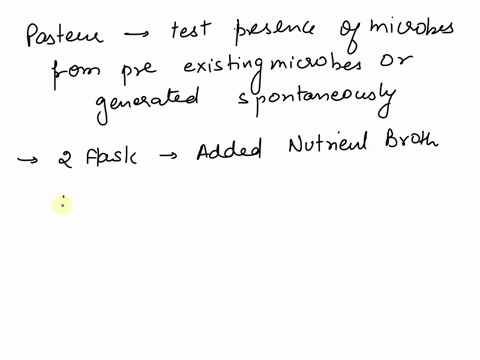 Pasteur → test presence of microbes
from pre existing microbes or
generated spontaneously
→ 2 flask → Added Nutrient Broth